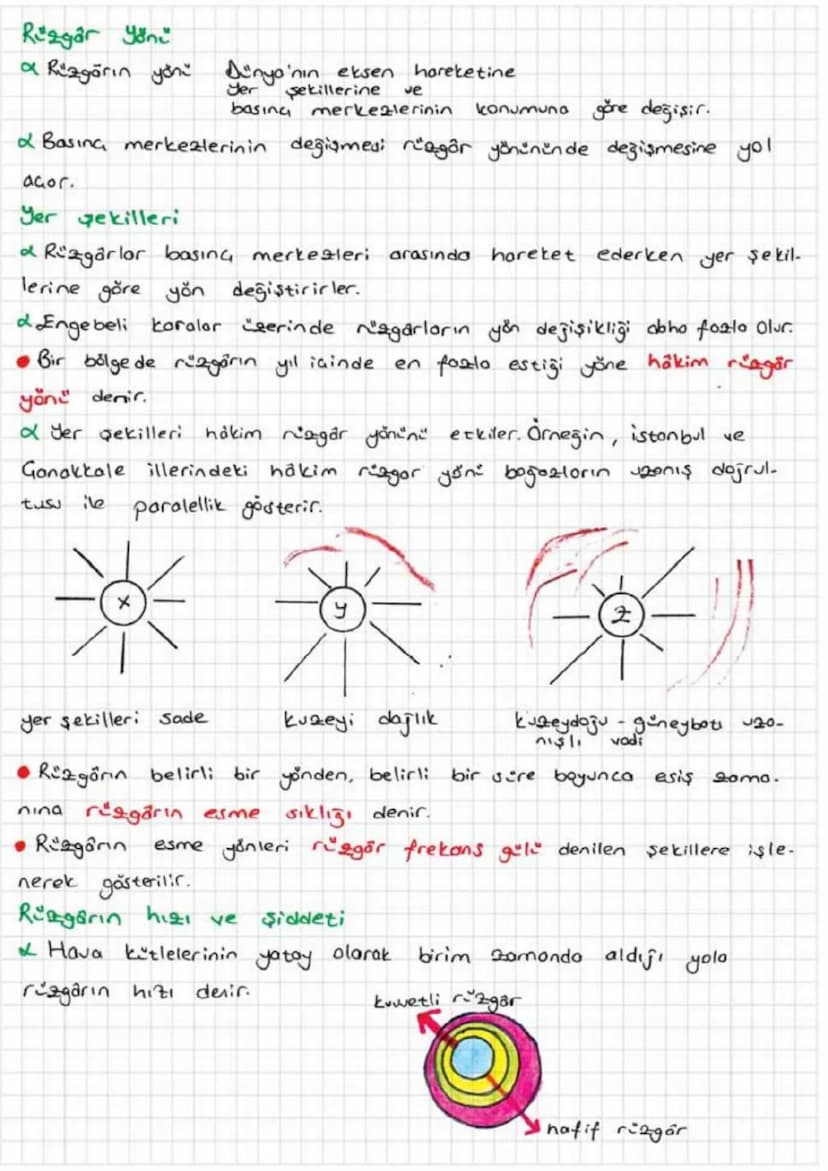 Rüzgâr Yönü
α Rüzgârın yönü Dünya'nın eksen hareketine
yer şekillerine ve
basınç merkezlerinin konumuna göre değişir.
α Basınç merkezlerinin değişmesi rüzgâr yönününde değişmesine yol
açar.
Yer şekilleri
α Rüzgârlar basınç merkezleri arasında hareket ederken yer şekil-
lerine göre yön değiştirirler.
α Engebeli karalar üzerinde rüzgârların yön değişikliği daha fazla olur.
• Bir bölgede rüzgârın yıl içinde en fazla estiği yöne hâkim rüzgâr
yönü denir.
α Yer şekilleri hâkim rüzgâr yönünü etkiler. Örneğin, istanbul ve
Çanakkale illerindeki hâkim rüzgar yönü boğazların uzanış doğrul-
tusu ile paralellik gösterir.
x y z
yer şekilleri sade kuzeyi dağlık kuzeydoğu - güneybatı uza-
nışlı vadi
• Rüzgârın belirli bir yönden, belirli bir süre boyunca esiş zama-
nına rüzgârın esme sıklığı denir.
• Rüzgârın esme yönleri rüzgâr frekans gülü denilen şekillere işle-
nerek gösterilir.
Rüzgârın hızı ve şiddeti
α Hava kütlelerinin yatay olarak birim zamanda aldığı yola
rüzgârın hızı denir.
kuvvetli rüzgâr
hafif rüzgâr